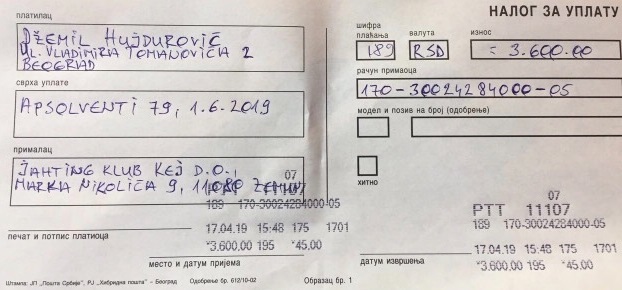 НАЛОГ ЗА УПЛАТУ
платилац
DŽEMIL HUJDUROVIĆ
UL. VLADIMIRA TOMANOVIĆA 2
BEOGRAD
сврха уплате
APSOLVENTI 79, 1.6.2019
прималац
JAHTING KLUB KEJ D.O.,
MARKA NIKOLIĆA 9, 11080 ZEMUN
07
PTT 11107
189 170-30024284000-05
17.04.19 15:48 175 1701
*3.600,00 195 *45,00
печат и потпис платиоца
место и датум пријема
шифра плаћања
189
валута
RSD
износ
= 3.600.00
рачун примаоца
170-30024284000-05
модел и позив на број (одобрење)
хитно
07
PTT 11107
189 170-30024284000-05
17.04.19 15:48 175 1701
*3.600,00 195 *45,00
датум извршења
Штампа: ЈП „Пошта Србије“, РЈ „Хибридна пошта“ – Београд Одобрење бр. 612/10-02
Образац бр. 1